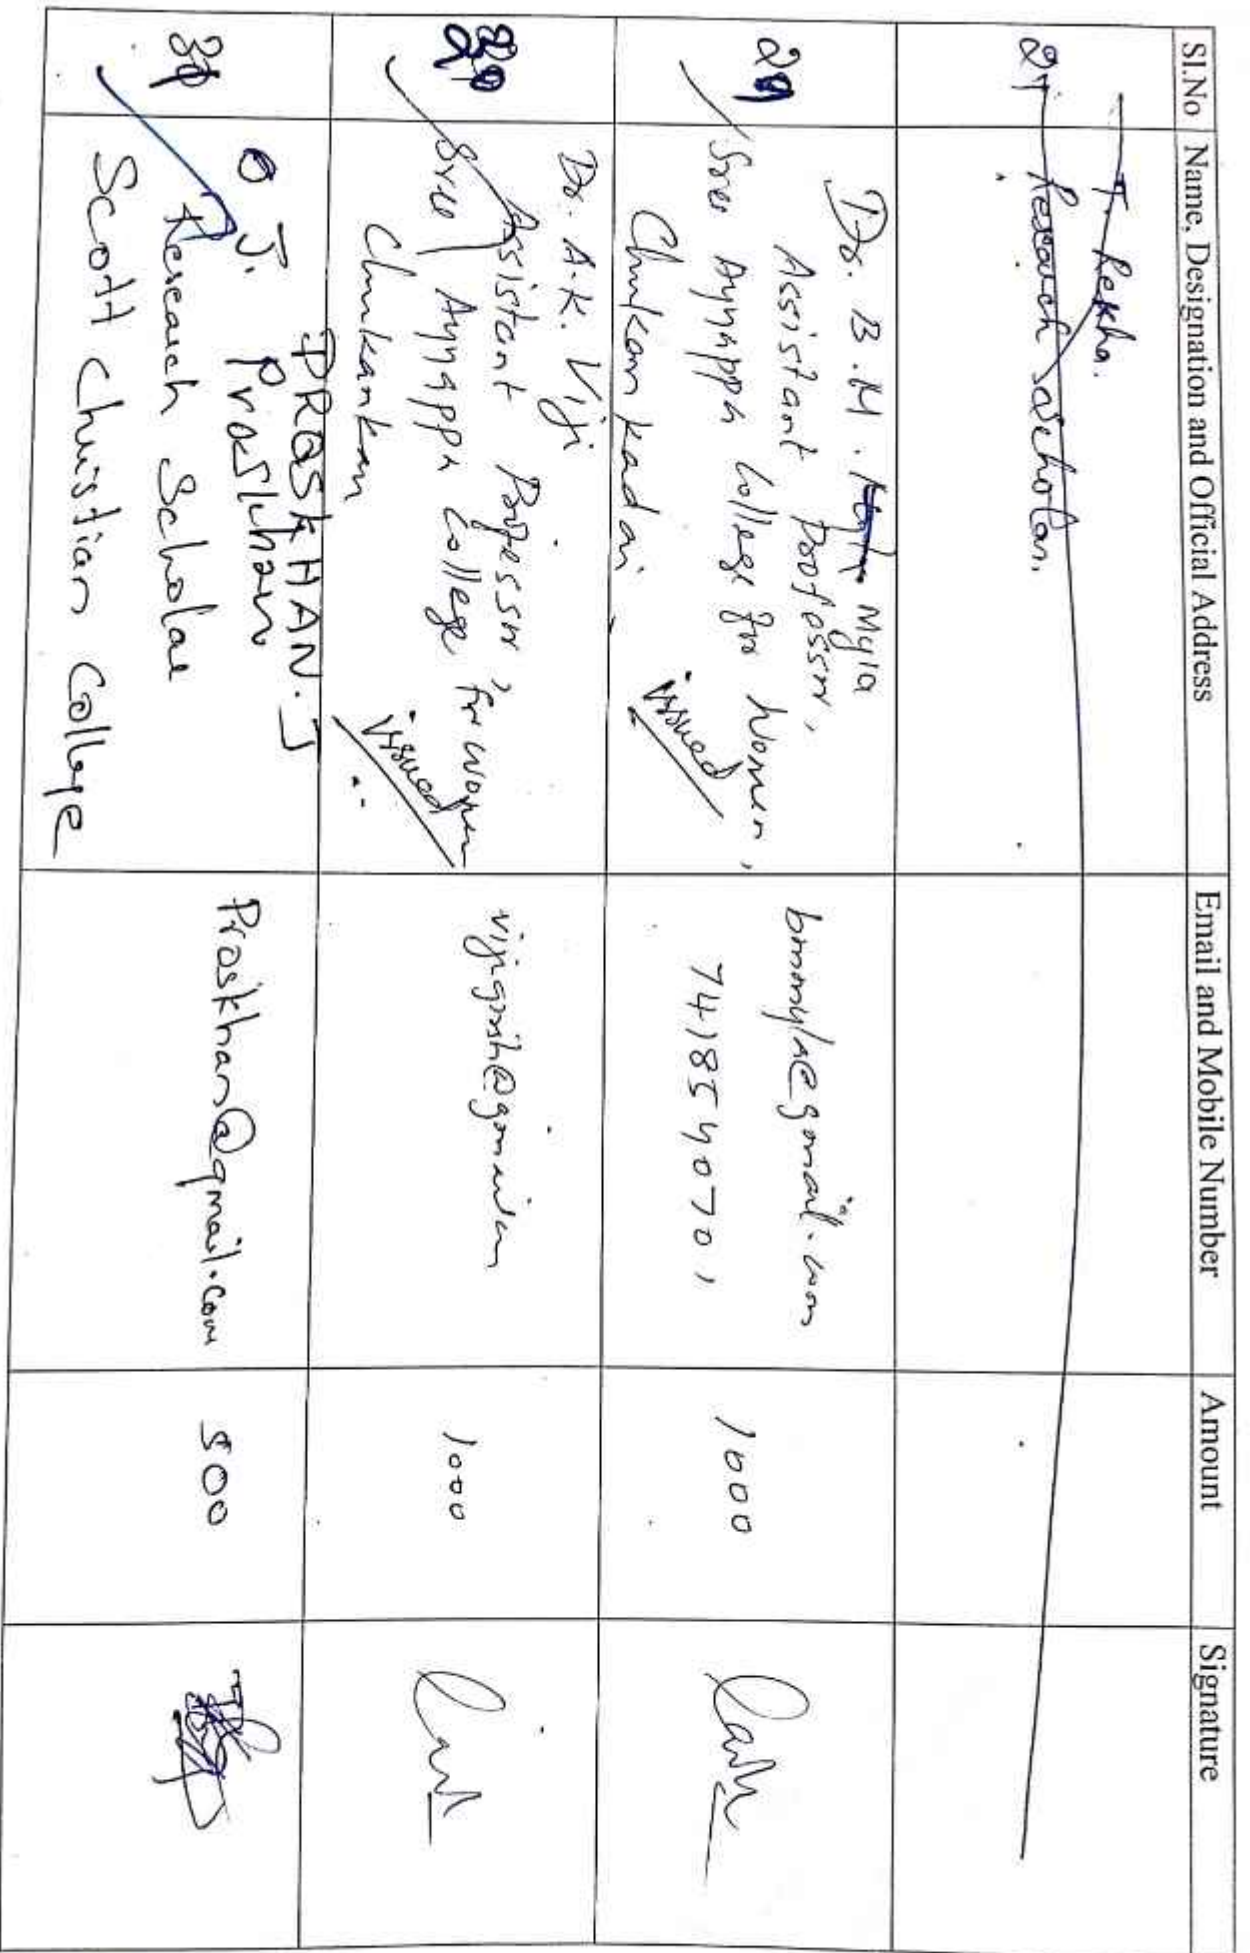 Sl.No Name, Designation and Official Address Email and Mobile Number Amount Signature
T. Rekha.
Research Scholar.
Dr. B.M. Myla
Assistant Professor,
Sree Ayyappa College for Women,
Chunkankadai
issued
bmmyla@gmail.com
7418540701
1000
Dr. A.K. Viji
Assistant Professor,
Sree Ayyappa College for women
Chunkankan
issued
1000
PRASKHAN.J
J. Praskhan
Research Scholar
Scott Christian College
Praskhan@gmail.com
500